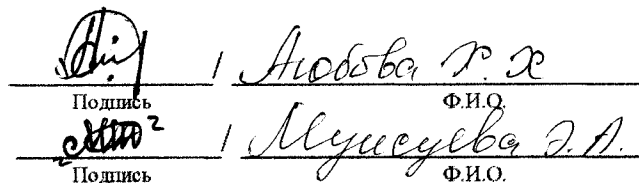 / Аюбова Х. Х
Подпись Ф.И.О.
/ Мунсуева Э. А.
Подпись Ф.И.О.